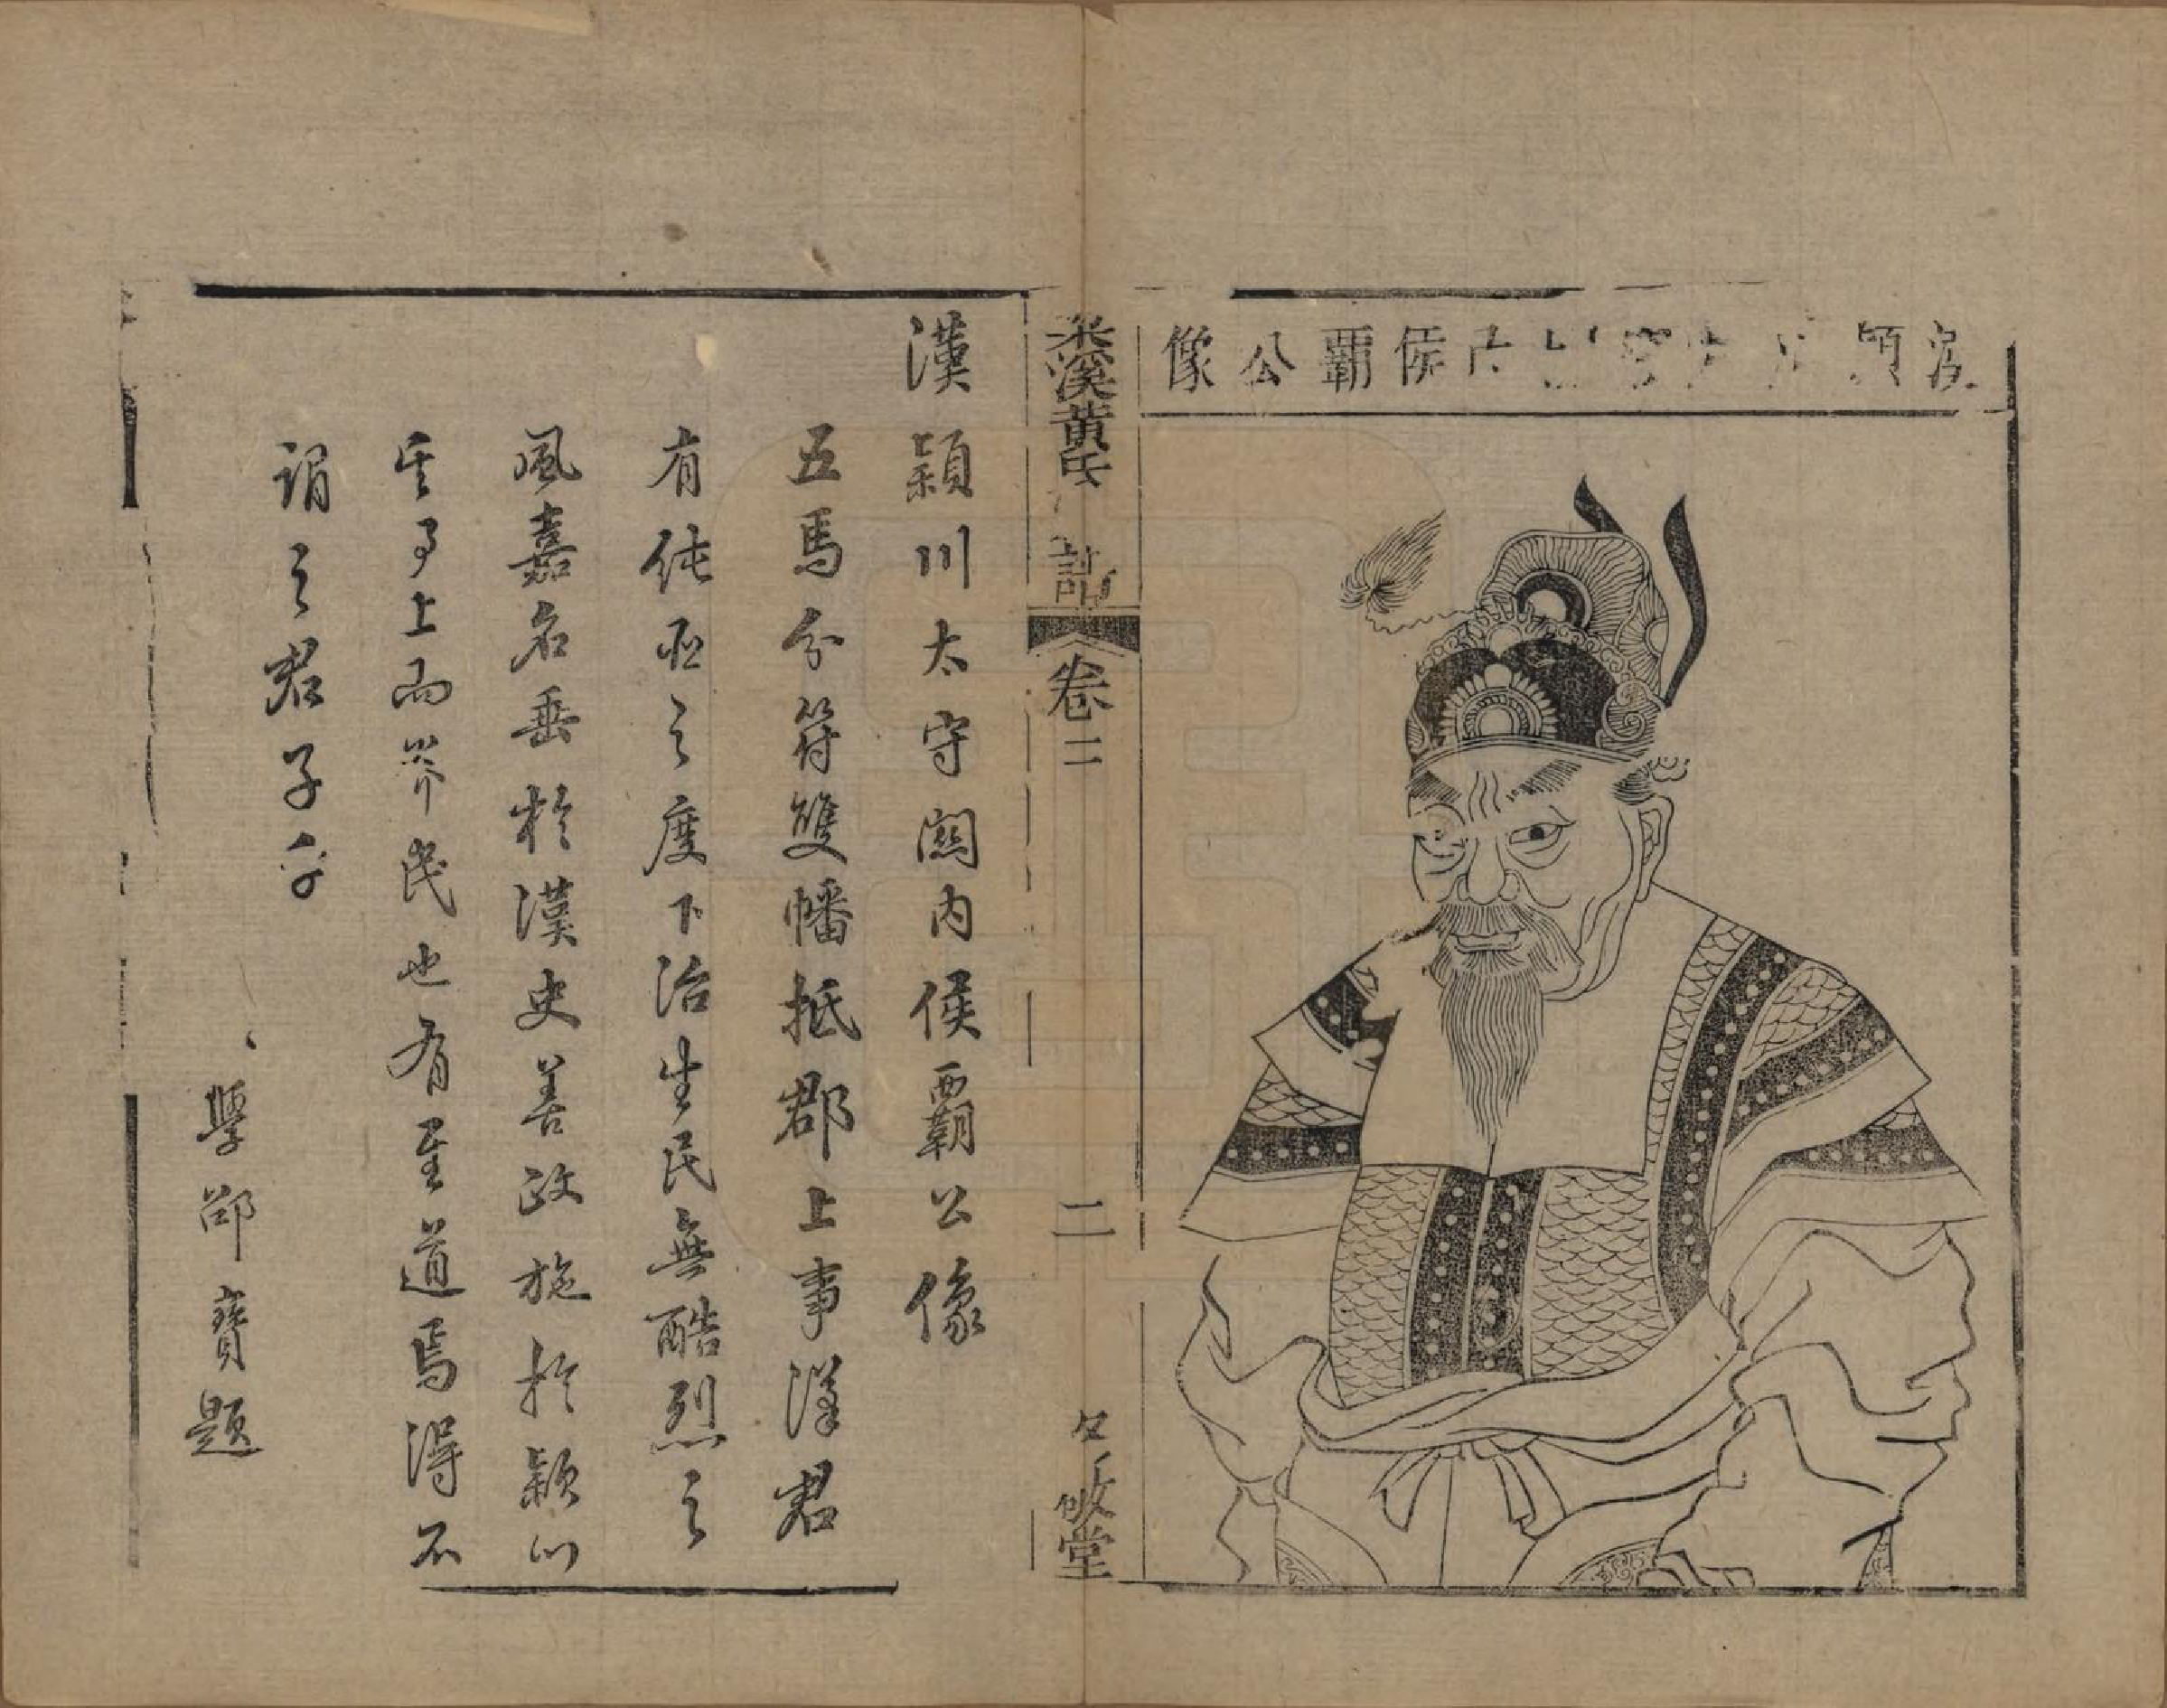 漢潁川太守關內侯霸公像
梁溪黃氏
卷二
二
敬堂
漢潁川太守關內侯霸公像
五馬分符雙幡抵郡上事漢君
有純臣之度下治生民無酷烈之
風嘉名垂於漢史善政施於潁川
其事上而养民也有至道焉得不
謂之君子乎
學邵寶題